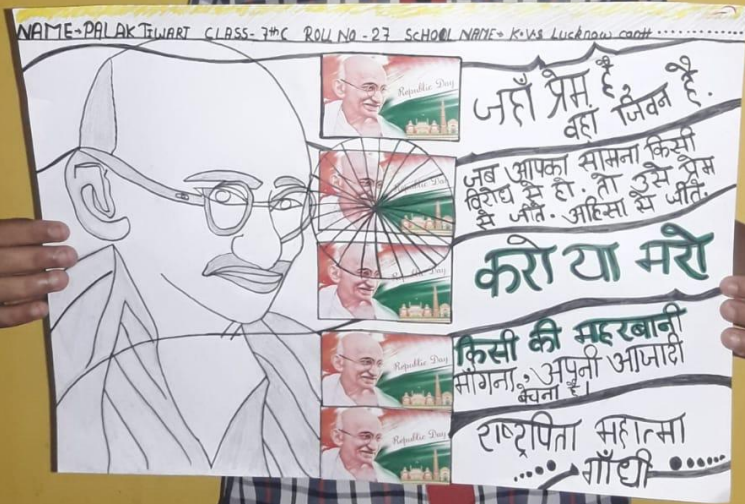 NAME→PALAK TIWARI CLASS-7thC ROLL NO-27 SCHOOL NAME→ K.V.S Lucknow cantt
Republic Day
जहाँ प्रेम है,
वहां जिवन है.
Republic Day
जब आपका सामना किसी
विरोध से हो. तो उसे प्रेम
से जीते. अहिंसा से जीते.
Republic Day
करो या मरो
Republic Day
किसी की महरबानी
माँगना, अपनी आजादी
बेचना है।
Republic Day
राष्ट्रपिता महात्मा
गाँधी